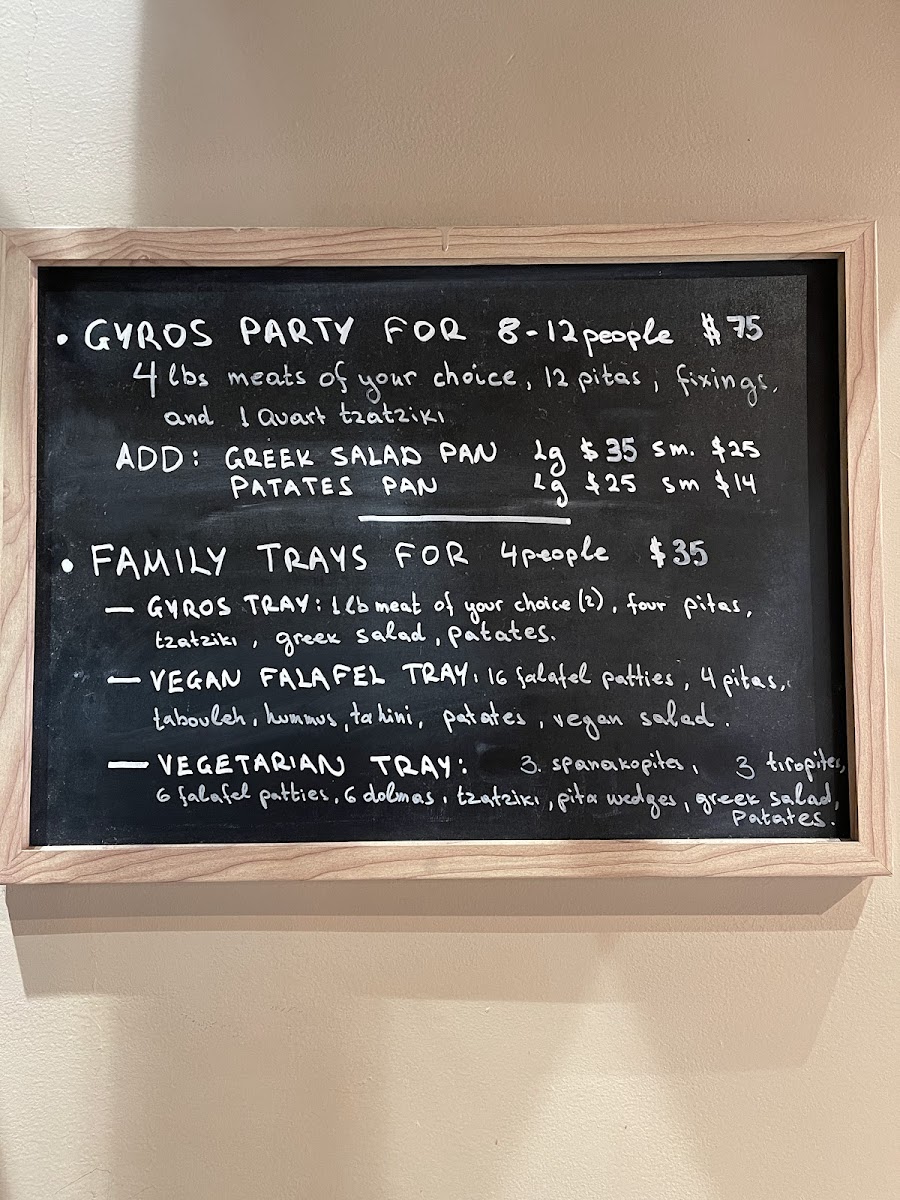 • GYROS PARTY FOR 8-12 people $75
4 lbs meats of your choice, 12 pitas, fixings,
and 1 Quart tzatziki
ADD: GREEK SALAD PAN Lg $35 sm. $25
PATATES PAN Lg $25 sm $14
• FAMILY TRAYS FOR 4 people $35
— GYROS TRAY: 1 lb meat of your choice (2), four pitas,
tzatziki, greek salad, patates.
— VEGAN FALAFEL TRAY: 16 falafel patties, 4 pitas,
tabouleh, hummus, tahini, patates, vegan salad.
— VEGETARIAN TRAY: 3. spanakopites, 3 tiropites,
6 falafel patties, 6 dolmas, tzatziki, pita wedges, greek salad,
Patates.